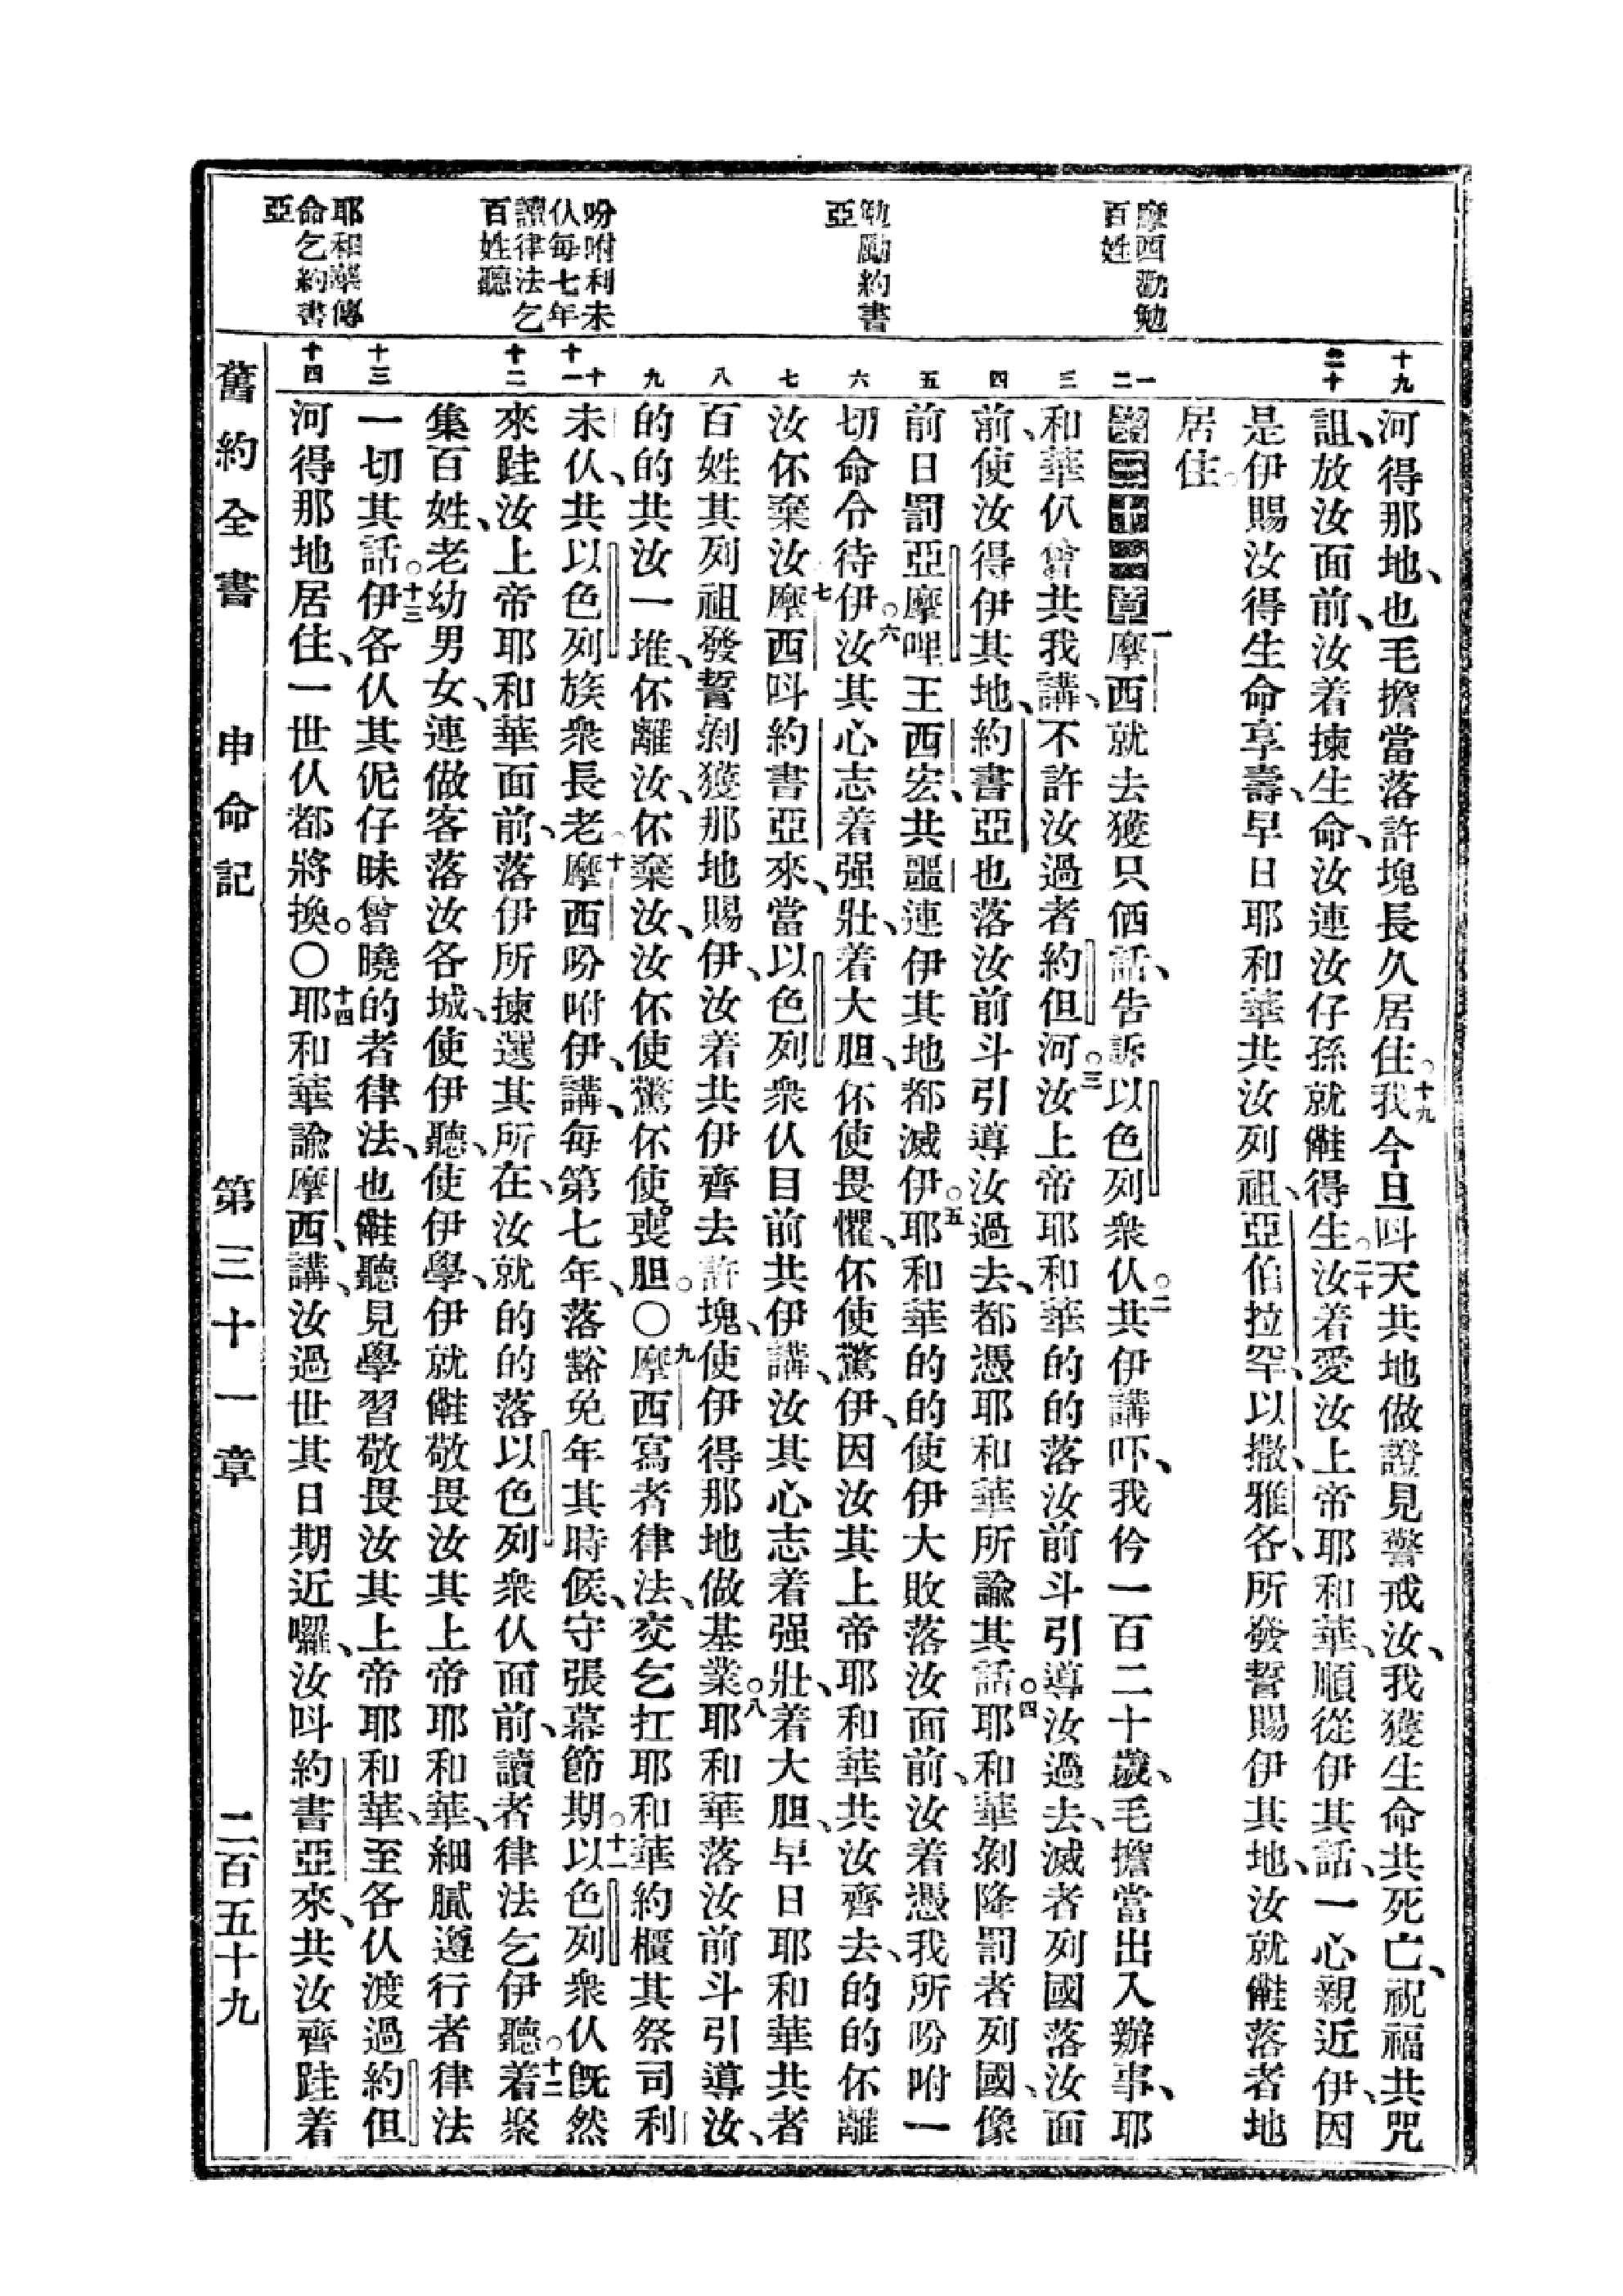 摩西勸勉
百姓
勉勵約書
亞
吩咐利未
仈每七年
讀律法乞
百姓聽
耶和華傳
命乞約書
亞
十九
二十
一
二
三
四
五
六
七
八
九
十
十一
十二
十三
十四
河得那地、也毛擔當落許塊長久居住。十九我今旦呌天共地做證見警戒汝、我獲生命共死亡、祝福共咒
詛、放汝面前、汝着揀生命、汝連汝仔孫就㒼得生。二十汝着愛汝上帝耶和華、順從伊其話、一心親近伊、因
是伊賜汝得生命享壽、早日耶和華共汝列祖、亞伯拉罕、以撒、雅各、所發誓賜伊其地、汝就㒼落者地
居住。
第三十一章一摩西就去獲只西話、告訴以色列衆仈。二共伊講吓、我仱一百二十歲、毛擔當出入辦事、耶
和華仈曾共我講、不許汝過者約但河。三汝上帝耶和華的的落汝前斗引導汝過去、滅者列國落汝面
前、使汝得伊其地、約書亞也落汝前斗引導汝過去、都憑耶和華所諭其話。四耶和華剝降罰者列國、像
前日罰亞摩哩王西宏、共噩連伊其地都滅伊。五耶和華的的使伊大敗落汝面前、汝着憑我所吩咐一
切命令待伊。六汝其心志着强壯、着大胆、伓使畏懼、伓使驚伊、因汝其上帝耶和華共汝齊去、的的伓離
汝伓棄汝七摩西呌約書亞來、當以色列衆仈目前共伊講、汝其心志着强壯、着大胆、早日耶和華共者
百姓其列祖發誓剝獲那地賜伊、汝着共伊齊去許塊、使伊得那地做基業。八耶和華落汝前斗引導汝、
的的共汝一堆、伓離汝、伓棄汝、汝伓使驚伓使喪胆。〇九摩西寫者律法、交乞扛耶和華約櫃其祭司利
未仈、共以色列族衆長老。十摩西吩咐伊、講、每第七年、落豁免年其時候、守張幕節期。十一以色列衆仈既然
來跬汝上帝耶和華面前、落伊所揀選其所在、汝就的的落以色列衆仈面前、讀者律法乞伊聽。十二着聚
集百姓、老幼男女、連做客落汝各城、使伊聽、使伊學、伊就㒼敬畏汝其上帝耶和華、細膩遵行者律法
一切其話。十三伊各仈其伲仔昧曾曉的者律法、也㒼聽見學習敬畏汝其上帝耶和華、至各仈渡過約但
河得那地居住、一世仈都將換。〇十四耶和華諭摩西、講、汝過世其日期近囉、汝呌約書亞來、共汝齊跬着
舊約全書 申命記 第三十一章 二百五十九